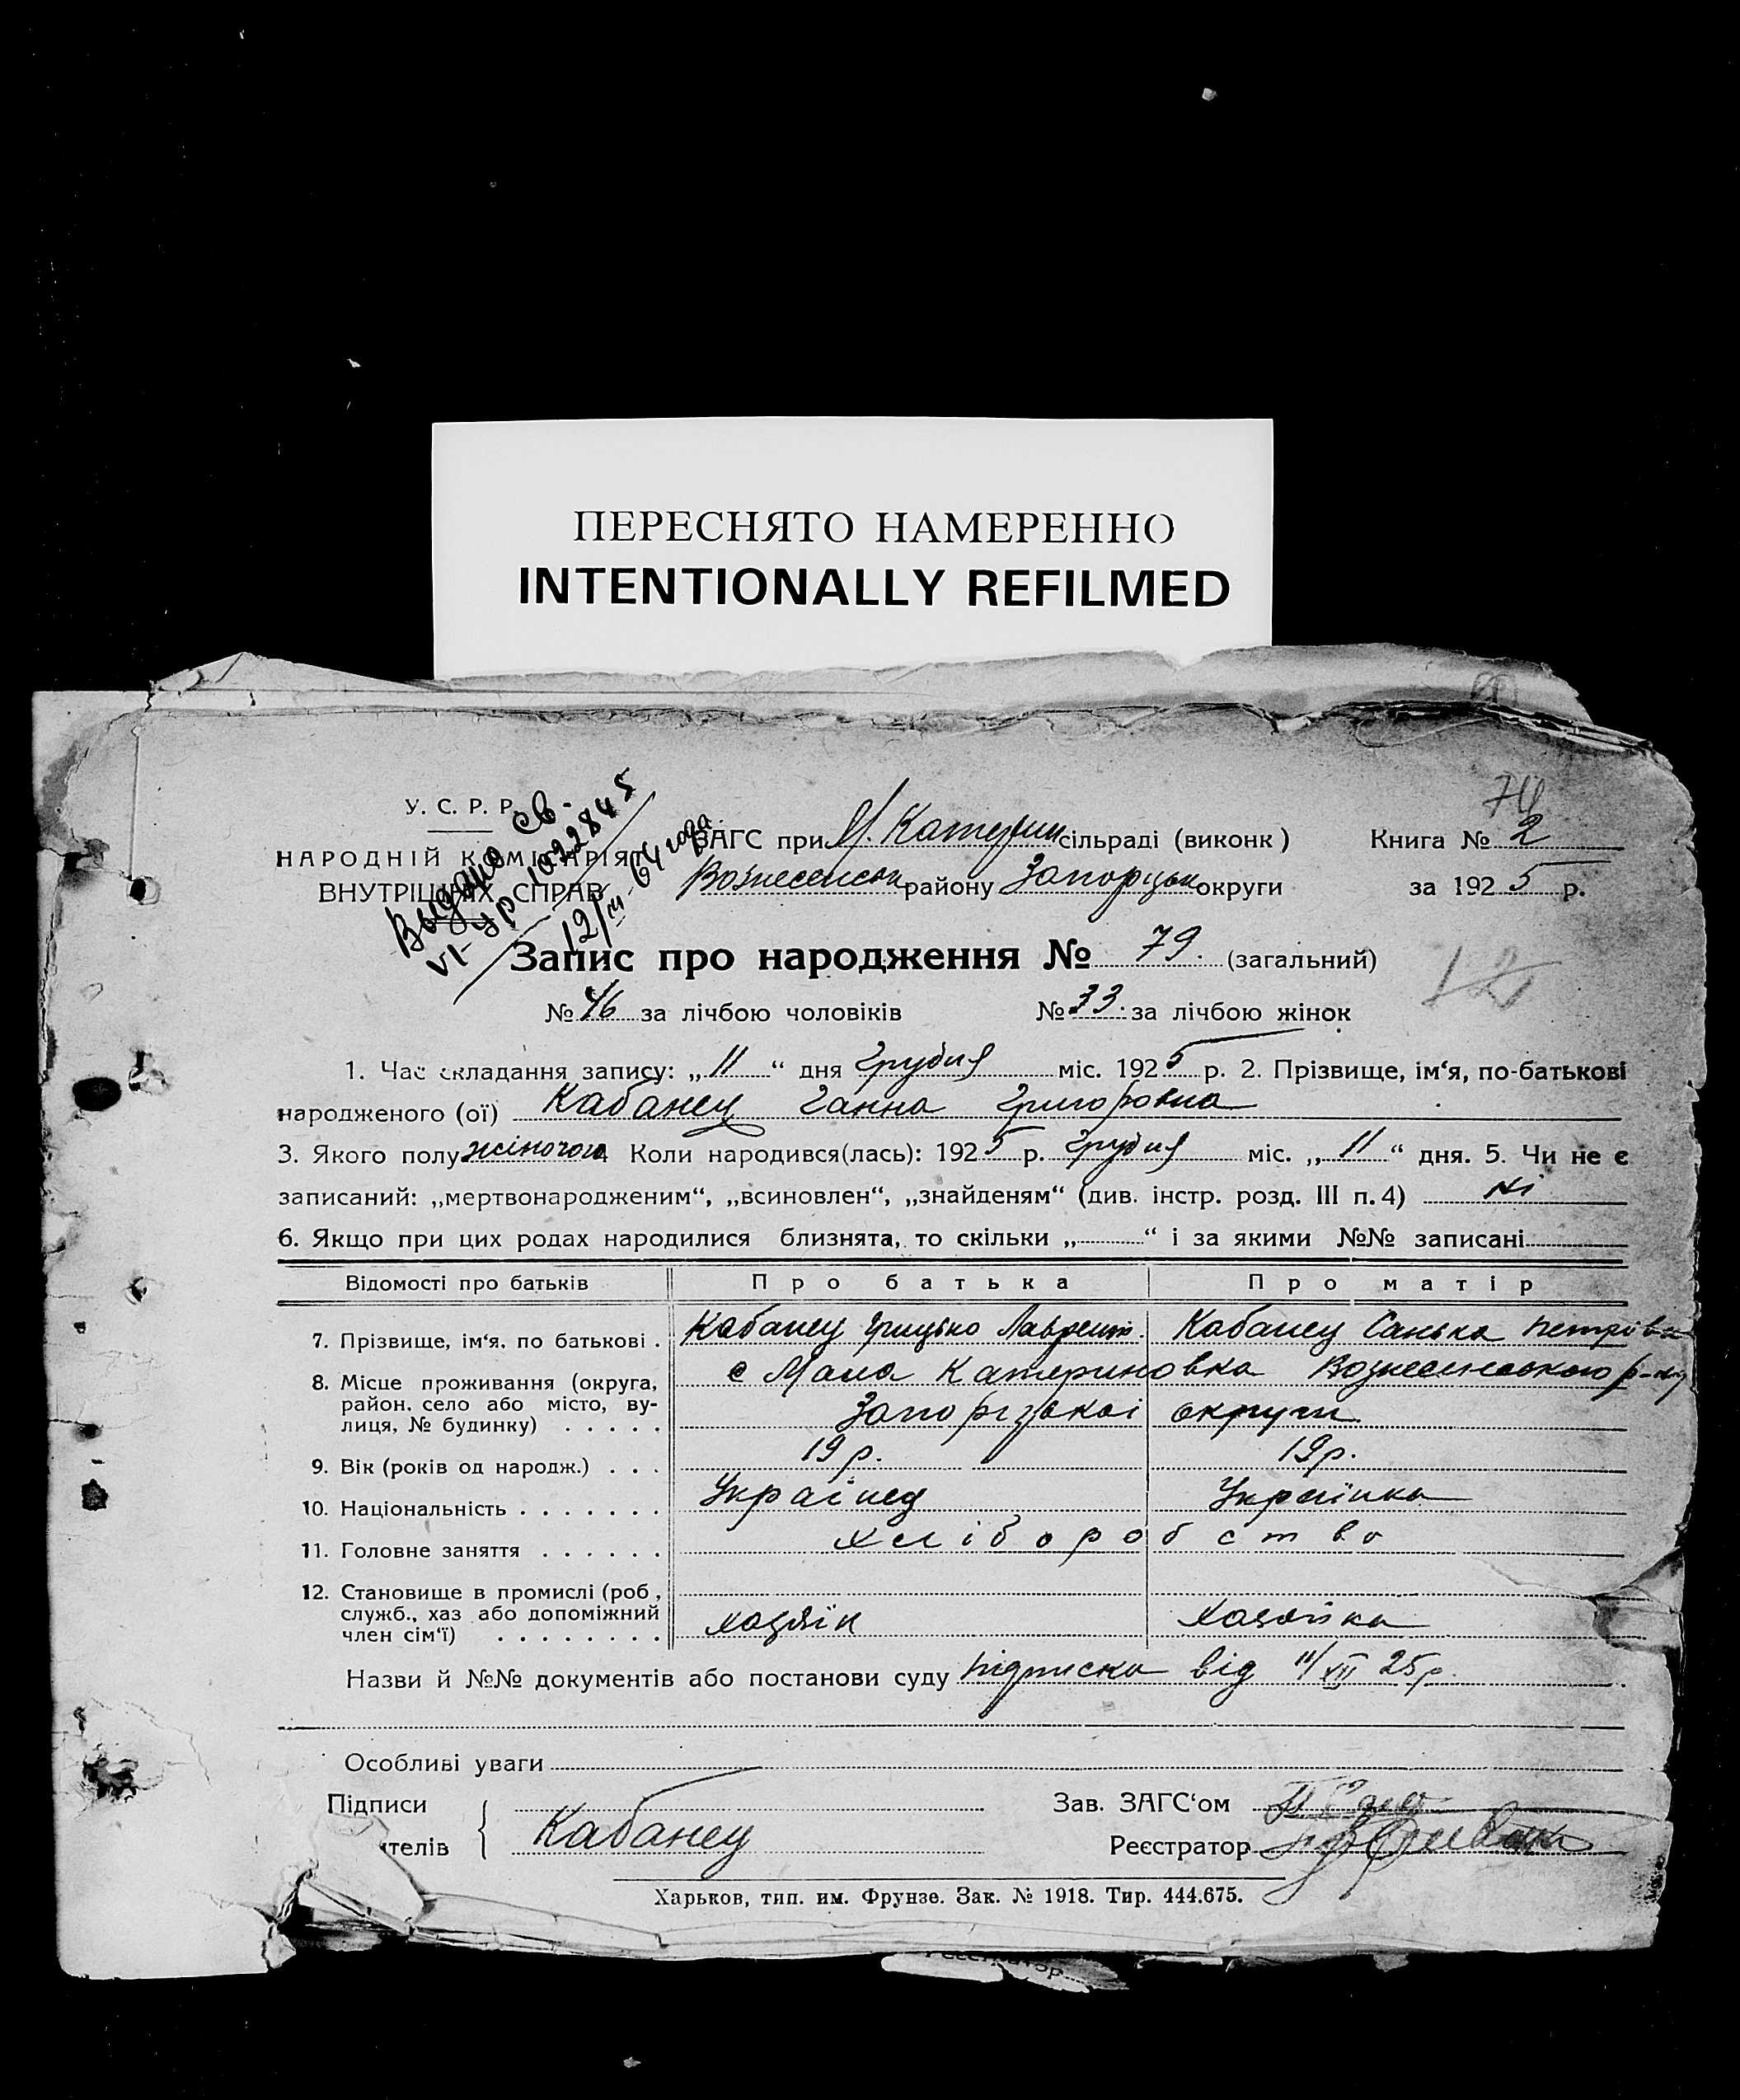 ПЕРЕСНЯТО НАМЕРЕННО
INTENTIONALLY REFILMED
74
У. С. Р. Р.
НАРОДНІЙ КОМІСАРІЯТ
ВНУТРІШНІХ СПРАВ
Выдано св.
VI-УР 1022845
12/III-64 года
ЗАГС при М. Катерин сільраді (виконк) Книга № 2
Вознесенськ району Запорізьк округи за 1925 р.
Запис про народження № 79. (загальний)
№ 46 за лічбою чоловіків № 33. за лічбою жінок
1. Час складання запису: „11“ дня Грудня міс. 1925 р. 2. Прізвище, ім‘я, по-батькові
народженого (ої) Кабанец Ганна Григоровна
3. Якого полу жіночого 4 Коли народився(лась): 1925 р. Грудня міс. „11“ дня. 5. Чи не є
записаний: „мертвонародженим“, „всиновлен“, „знайденям“ (див. інстр. розд. III п. 4) ні
6. Якщо при цих родах народилися близнята, то скільки „ “ і за якими №№ записані
Відомості про батьків Про батька Про матір
7. Прізвище, ім‘я, по батькові . Кабанец Грицько Лаврент. Кабанец Санька Петрівна
8. Місце проживання (округа, район, село або місто, вулиця, № будинку) . . . . . с Мала Катериновка Вознесенського р-ну
Запорізькоі округи
9. Вік (років од народж.) . . . 19 р. 19 р.
10. Національність . . . . . . . Українец Українка
11. Головне заняття . . . . . . хліборобство
12. Становище в промислі (роб, служб., хаз або допоміжний член сім‘ї) . . . . . . . . хазяїн хазяйка
Назви й №№ документів або постанови суду підписка від 11/XII 25 р.
Особливі уваги
Підписи
ителів Кабанец
Зав. ЗАГС‘ом
Реєстратор
Харьков, тип. им. Фрунзе. Зак. № 1918. Тир. 444.675.